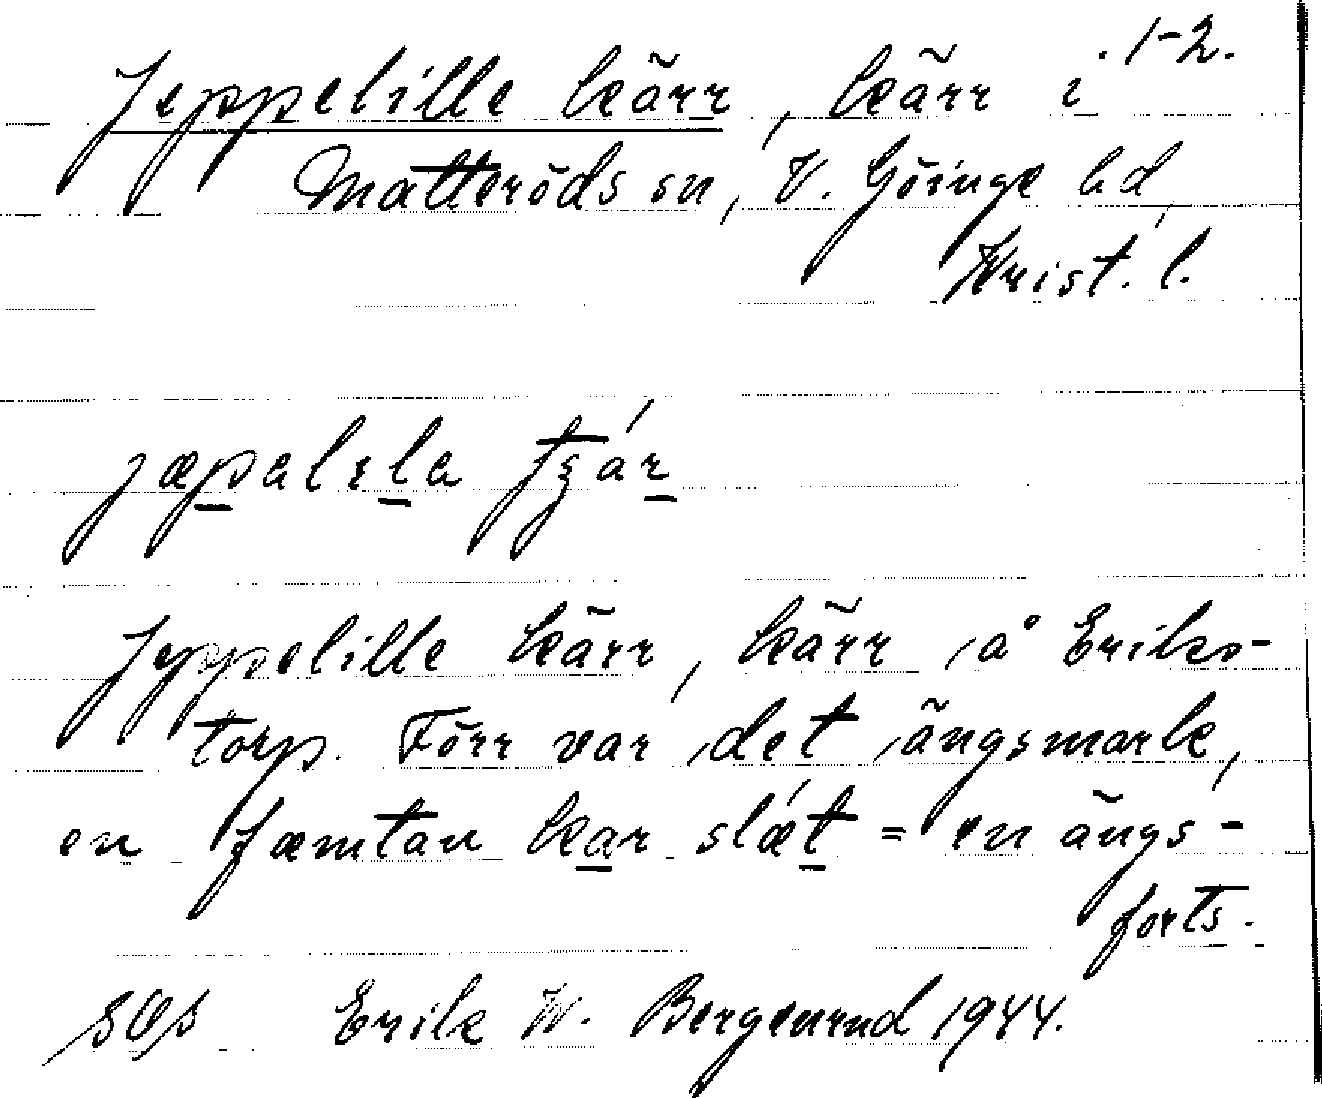 1-2.
Jeppelille kärr, kärr i
Matteröds sn, V. Göinge hd,
Krist. l.
jæpalıla tʃár
Jeppelille kärr, kärr å Eriks-
torp. Förr var det ängsmark,
en fæmtan kar slǽt = en ängs-
forts.
SOS Erik W. Bergenrud 1944.